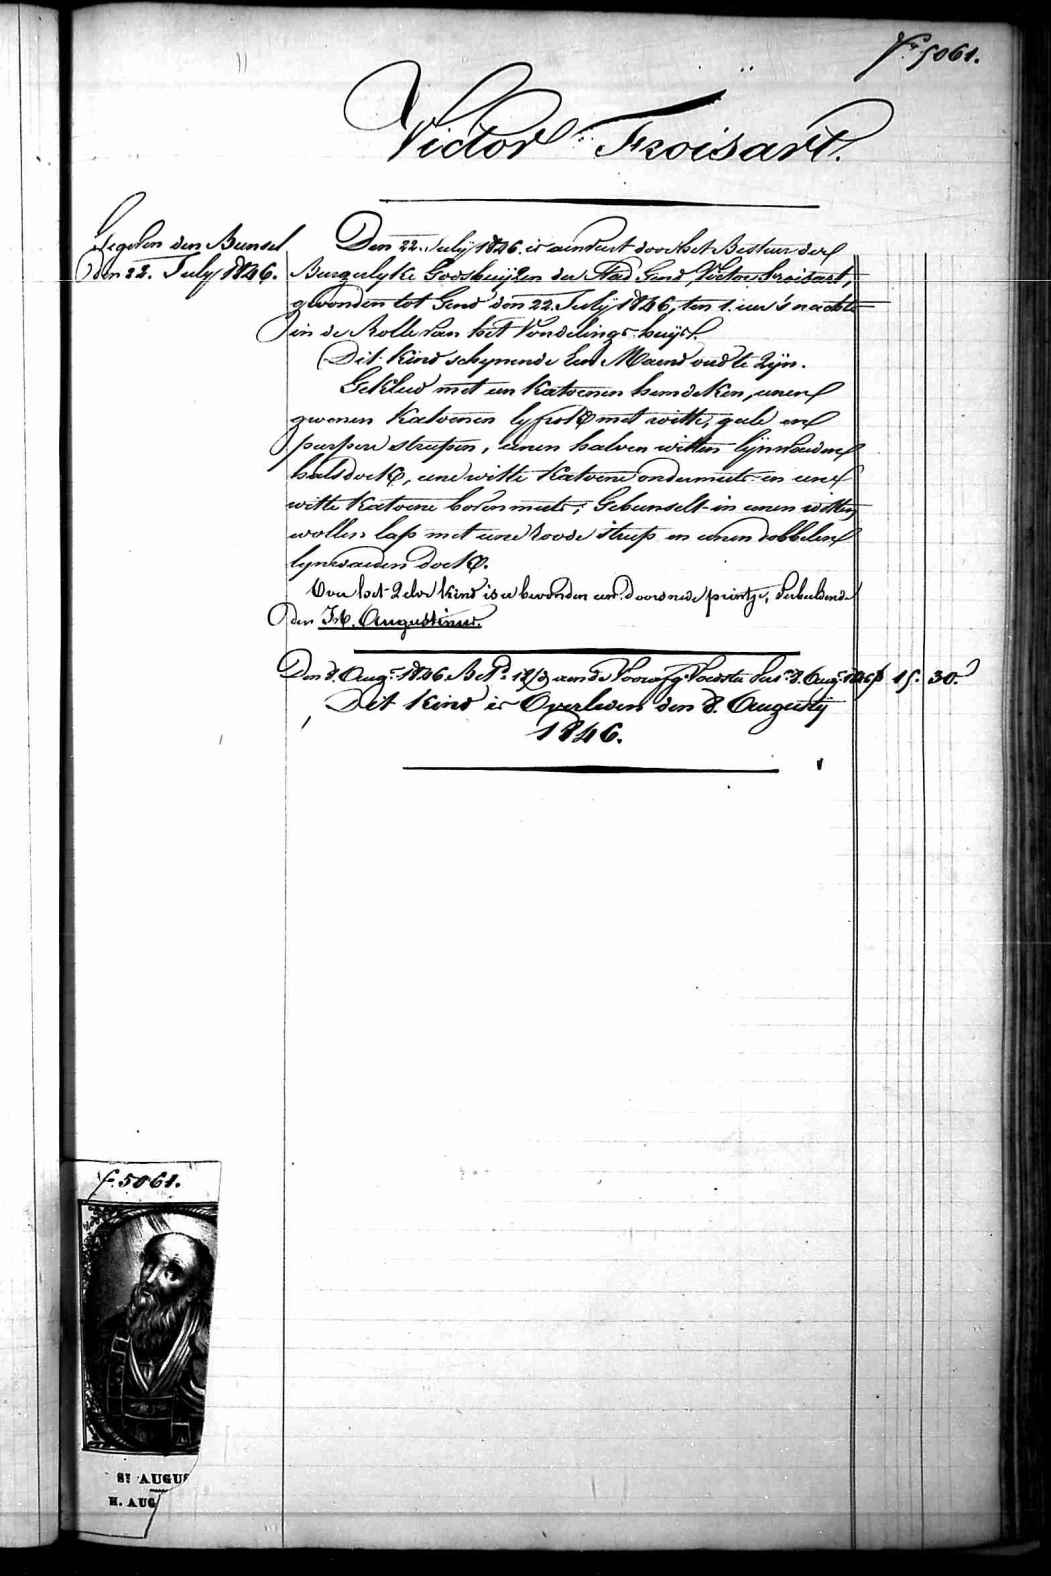 f.º 5061.
Victor Froisart.
Gegeven den Bunsel
den 22. July 1846.
Den 22. July 1846. is aenveert door het Bestuer der
Burgerlyke Godshuijzen der Stad Gend, Victor Froisart,
gevonden tot Gend den 22. July 1846, ten 1. uer 's nachts
in de Rolle van het Vondelings-huijs.
Dit kind schynende een Maend oud te zijn.
Gekleed met een katoenen hemdeken, eenen
groenen katoenen lyfrok met witte, gele en
purpere streepen, eenen halven witten lijnwaeden
halsdoek, eene witte katoene ondermuts en eene
witte katoene bovenmuts; Gebunselt in eenen witten
wollen lap met eene roode streep en eenen dobbelen
lynwaeden doek.
Over het zelve kind is er bevonden een doorsnede printje, verbeeldende
den H. Augustinus.
Den 8. Aug. 1846 aen de Voedster 8. Aug. 1846 15. 30.
Dit kind is Overleden den 8. Augusty
1846.
f. 5061.
St AUGUS
H. AUG